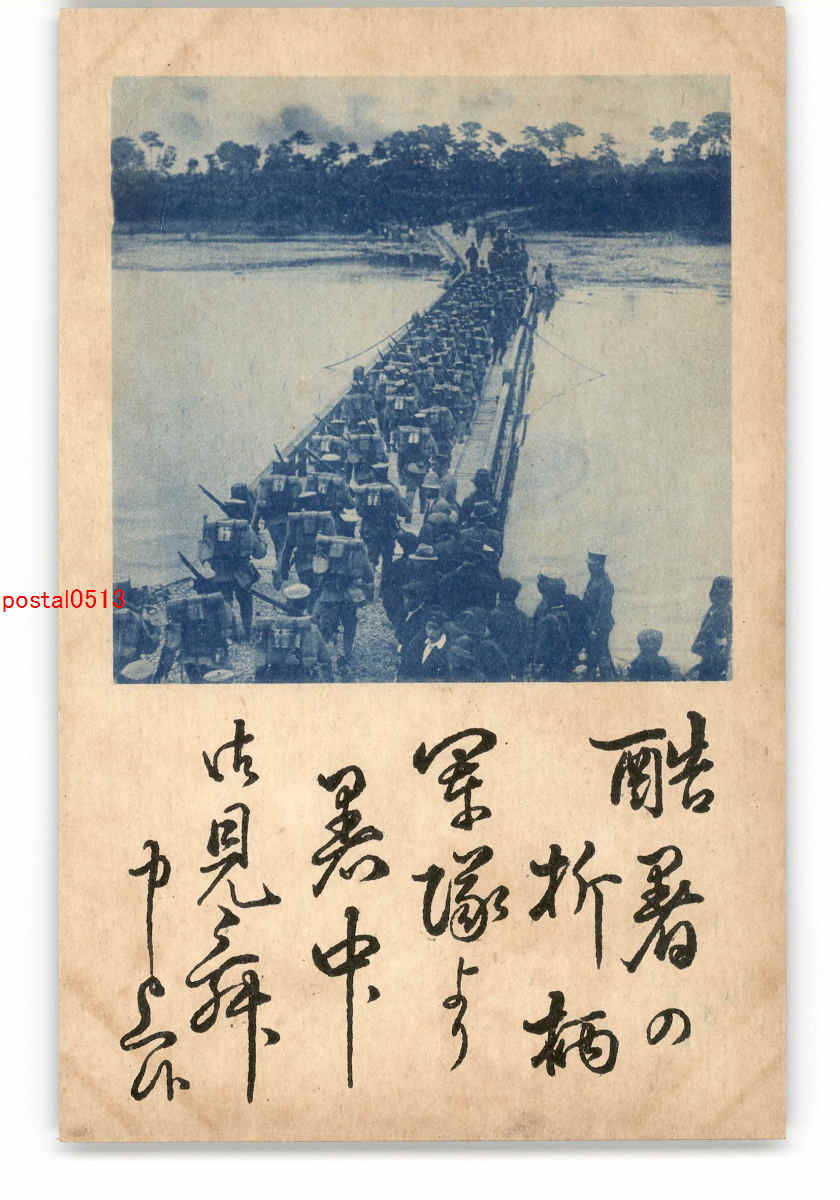 酷暑の
折柄
軍隊より
暑中
御見舞
申上候
postal0513